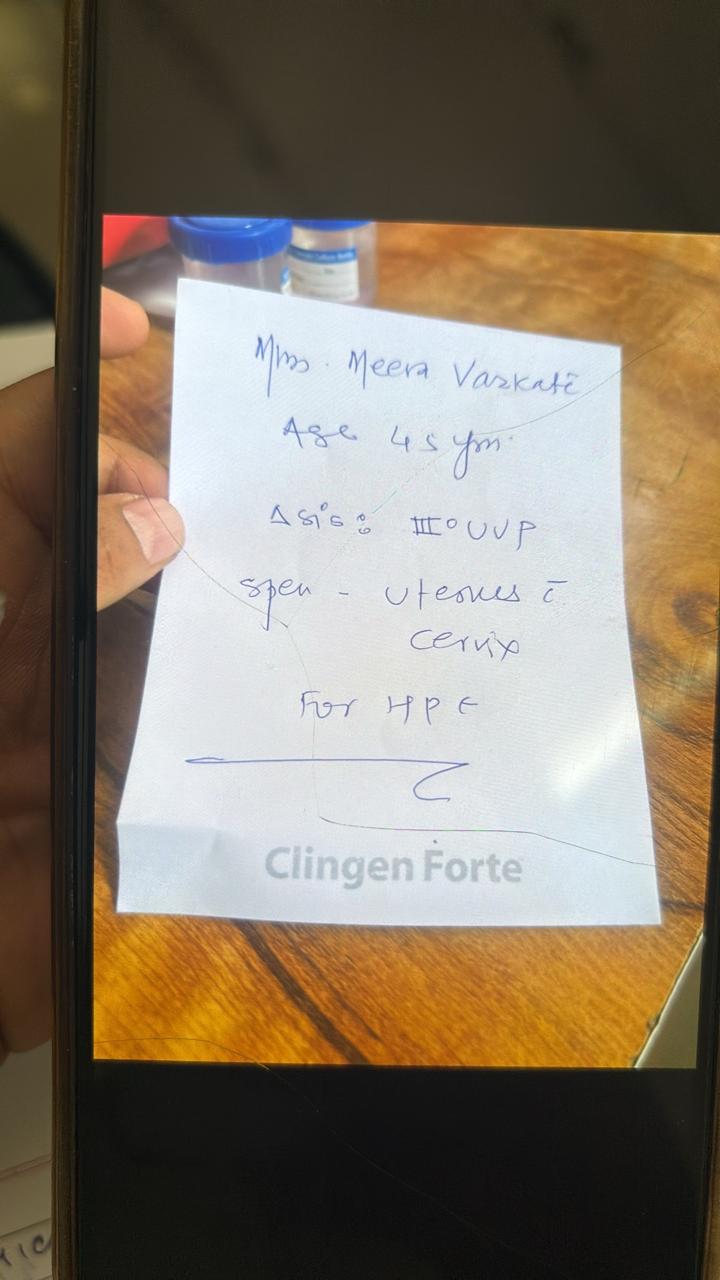 Mrs. Meera Varkate
Age 45 yrs.
Δsis: III° UVP
Spen - Uterus c̄
Cervix
For HPE
Clingen Forte